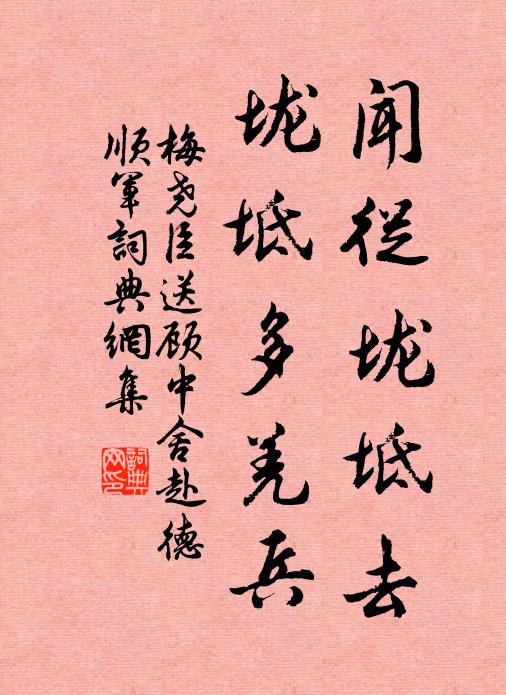 闻从垅坻去
垅坻多羌兵
梅尧臣送顾中舍赴德
顺军词典網集
詞典網印